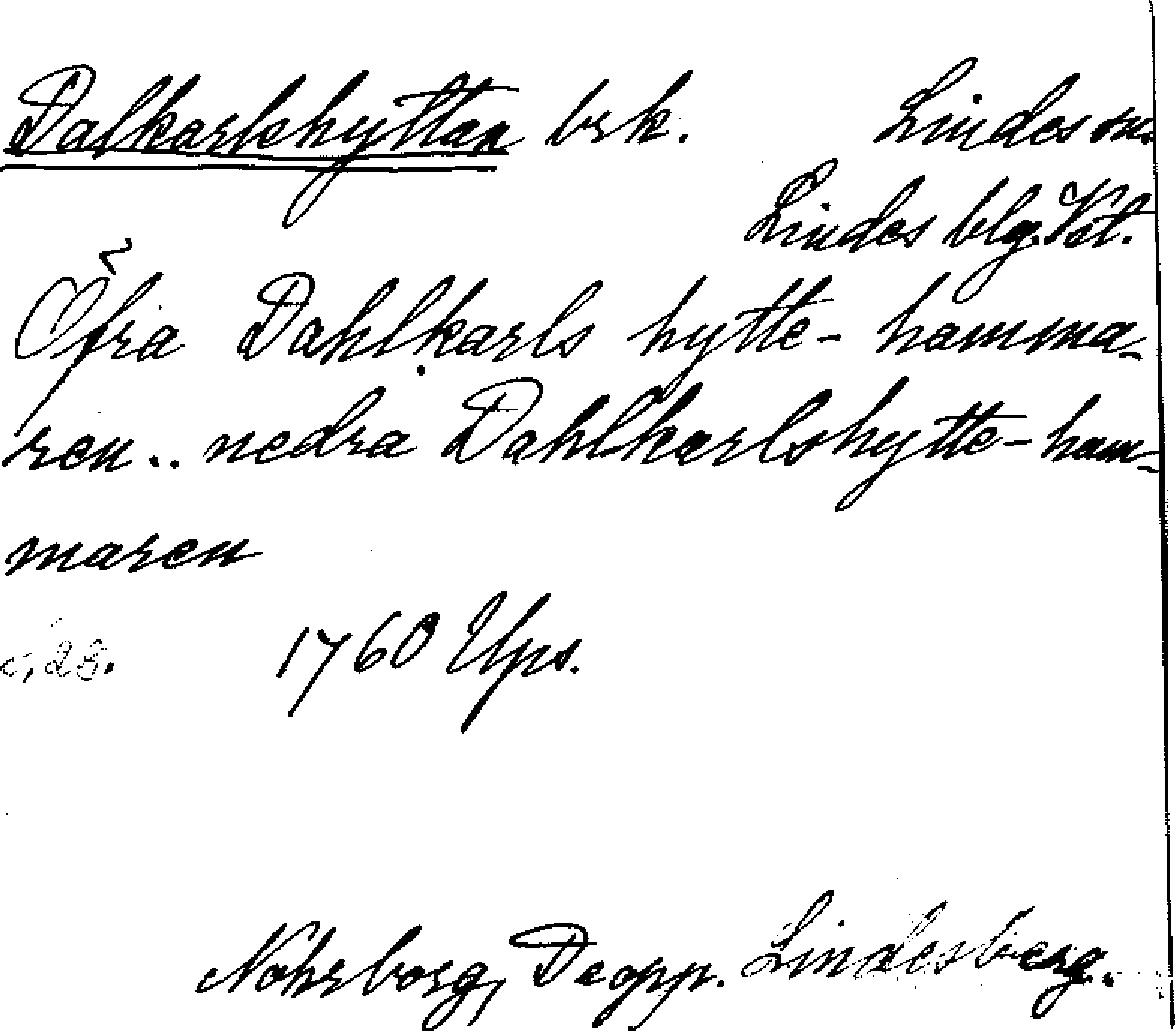 Dalkarlshyttan brk. Lindes sn.
Lindes blg. Vstl.
Öfra Dahlkarls hytte- hamma-
ren .. nedra Dahlkarlshytte-ham-
maren
s. 28. 1760 Ups.
Nohrborg, Deopp. Lindesberg.